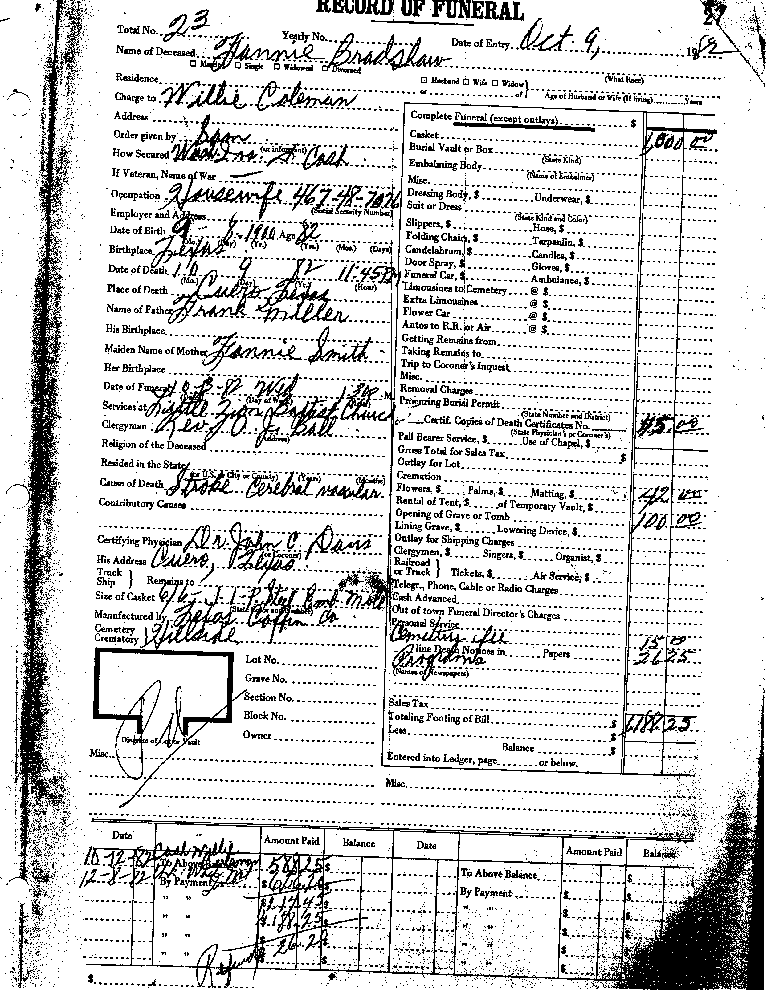 RECORD OF FUNERAL
Total No. 23 Yearly No. Date of Entry Oct 9, 1982
Name of Deceased Fannie Bradshaw
☐ Married ☐ Single ☐ Widowed ☐ Divorced
Residence ☐ Husband ☐ Wife ☐ Widow (What Race)
or of Age of Husband or Wife (if living) Years
Charge to Willie Coleman
Address
Order given by Same
(or informant)
How Secured Cash
If Veteran, Name of War —
Occupation Housewife
(Social Security Number)
Employer and Address
Date of Birth 9 8 1900 Age 82
(Mo.) (Day) (Yr.) (Yrs.) (Mos.) (Days)
Birthplace Texas
Date of Death 10 9 82 11:45
(Hour)
Place of Death Cuero Texas
Name of Father Frank Miller
His Birthplace
Maiden Name of Mother Fannie Smith
Her Birthplace
Date of Funeral 82 Wed M.
Services at Zion Baptist Church
Clergyman Rev. J. Ball
(Address)
Religion of the Deceased
Resided in the State
(or U.S. or City or County) (Years) (Months)
Cause of Death Stroke Cerebral vascular
Contributory Causes
Certifying Physician Dr. John C. Davis
(or Coroner)
His Address Cuero, Texas
Truck
Ship } Remains to
Size of Casket 6/6
Manufactured by Texas Coffin Co
Cemetery
Crematory } Hillside
Lot No.
Grave No.
Section No.
Block No.
Owner
Diagram of Lot or Vault
Pd
Misc.
Complete Funeral (except outlays) $
Casket 1,000 00
Burial Vault or Box
(State Kind)
Embalming Body
(Name of Embalmer)
Misc.
Dressing Body, $ Underwear, $
Suit or Dress
(State Kind and Color)
Slippers, $ Hose, $
Folding Chairs, $ Tarpaulin, $
Candelabrum, $ Candles, $
Door Spray, $ Gloves, $
Funeral Car, $ Ambulance, $
Limousines to Cemetery @ $
Extra Limousines @ $
Flower Car @ $
Autos to R.R. or Air @ $
Getting Remains from
Taking Remains to
Trip to Coroner's Inquest
Misc.
Removal Charges
Procuring Burial Permit
(State Number and District)
Certif. Copies of Death Certificates No. 5.00
(State Physician's or Coroner's)
Pall Bearer Service, $ Use of Chapel, $
Gross Total for Sales Tax $
Outlay for Lot
Cremation
Flowers, $ Palms, $ Matting, $ 42 00
Rental of Tent, $ of Temporary Vault, $
Opening of Grave or Tomb 100 00
Lining Grave, $ Lowering Device, $
Outlay for Shipping Charges
Clergymen, $ Singers, $ Organist, $
Railroad
or Truck } Tickets, $ Air Service, $
Telegr., Phone, Cable or Radio Charges
Cash Advanced
Out of town Funeral Director's Charges
Personal Service
Cemetery fee 15 00
line Death Notices in Papers
Programs 26 25
(Names of Newspapers)
Sales Tax
Totaling Footing of Bill $ 1188 25
Less $
Balance $
Entered into Ledger, page or below.
Misc.
Date Amount Paid Balance Date Amount Paid Balance
10-12-82 Cash Willie
To Above Balance $ 588 25 $ To Above Balance $
12-8-82
By Payment By Payment
1188.25
Refund 26.20